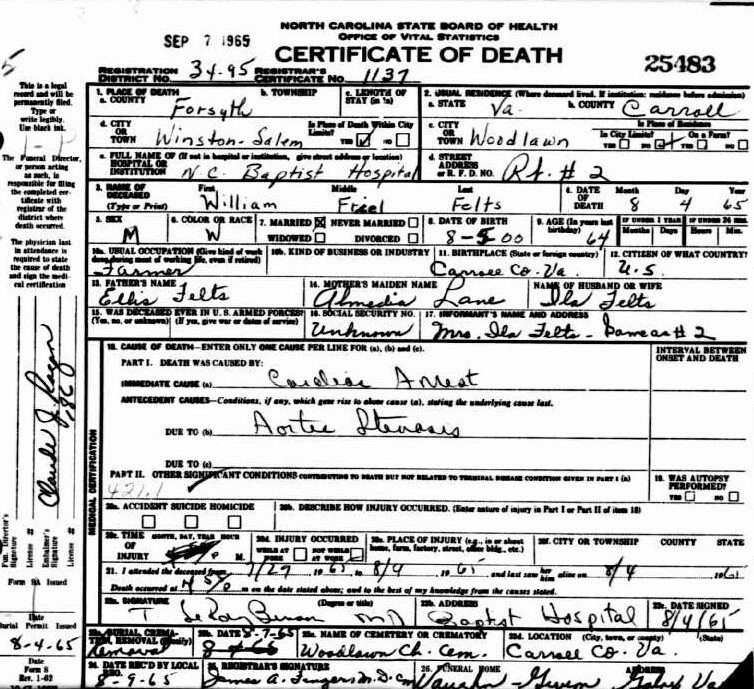 NORTH CAROLINA STATE BOARD OF HEALTH
OFFICE OF VITAL STATISTICS
SEP 7 1965
CERTIFICATE OF DEATH
25483
REGISTRATION DISTRICT NO. 34-95 REGISTRAR'S CERTIFICATE NO. 1137
5
This is a legal record and will be permanently filed. Type or write legibly. Use black ink.
The Funeral Director, or person acting as such, is responsible for filing the completed certificate with registrar of the district where death occurred.
The physician last in attendance is required to state the cause of death and sign the medical certification
1. PLACE OF DEATH a. COUNTY Forsyth b. TOWNSHIP c. LENGTH OF STAY (in 1a)
2. USUAL RESIDENCE (Where deceased lived. If institution: residence before admission)
a. STATE Va. b. COUNTY Carroll
d. CITY OR TOWN Winston-Salem Is Place of Death Within City Limits? YES NO
c. CITY OR TOWN Woodlawn Is Place of Residence In City Limits? YES NO On a Farm? YES NO
e. FULL NAME OF HOSPITAL OR INSTITUTION (If not in hospital or institution, give street address or location) N.C. Baptist Hospital
d. STREET ADDRESS or R.F.D. NO. Rt. # 2
3. NAME OF DECEASED (Type or Print) First William Middle Friel Last Felts
4. DATE OF DEATH Month 8 Day 4 Year 65
5. SEX M 6. COLOR OR RACE W 7. MARRIED NEVER MARRIED WIDOWED DIVORCED
8. DATE OF BIRTH 8-5-00 9. AGE (In years last birthday) 64 IF UNDER 1 YEAR Months Days IF UNDER 24 HRS. Hours Min.
10a. USUAL OCCUPATION (Give kind of work done during most of working life, even if retired) Farmer
10b. KIND OF BUSINESS OR INDUSTRY
11. BIRTHPLACE (State or foreign country) Carroll Co. Va.
12. CITIZEN OF WHAT COUNTRY? U.S.
13. FATHER'S NAME Ellis Felts
14. MOTHER'S MAIDEN NAME Almedia Lane
NAME OF HUSBAND OR WIFE Ila Felts
15. WAS DECEASED EVER IN U.S. ARMED FORCES? (Yes, no, or unknown) (If yes, give war or dates of service)
16. SOCIAL SECURITY NO. Unknown
17. INFORMANT'S NAME AND ADDRESS Mrs. Ila Felts - Same as # 2
MEDICAL CERTIFICATION
18. CAUSE OF DEATH—ENTER ONLY ONE CAUSE PER LINE FOR (a), (b) and (c).
INTERVAL BETWEEN ONSET AND DEATH
PART I. DEATH WAS CAUSED BY:
IMMEDIATE CAUSE (a) Cardiac Arrest
ANTECEDENT CAUSES—Conditions, if any, which gave rise to above cause (a), stating the underlying cause last.
DUE TO (b) Aortic Stenosis
DUE TO (c)
PART II. OTHER SIGNIFICANT CONDITIONS CONTRIBUTING TO DEATH BUT NOT RELATED TO TERMINAL DISEASE CONDITION GIVEN IN PART I (a)
421.1
19. WAS AUTOPSY PERFORMED? YES NO
20a. ACCIDENT SUICIDE HOMICIDE
20b. DESCRIBE HOW INJURY OCCURRED. (Enter nature of injury in Part I or Part II of item 18)
20c. TIME OF INJURY MONTH, DAY, YEAR HOUR M.
20d. INJURY OCCURRED WHILE AT WORK NOT WHILE AT WORK
20e. PLACE OF INJURY (e.g., in or about home, farm, factory, street, office bldg., etc.)
20f. CITY OR TOWNSHIP COUNTY STATE
21. I attended the deceased from 7/29 1965 to 8/4 1965 and last saw her him alive on 8/4 196
Death occurred at m on the date stated above; and to the best of my knowledge from the causes stated.
22a. SIGNATURE (Degree or title) T. LeRoy MD
22b. ADDRESS Baptist Hospital
22c. DATE SIGNED 8/4/65
23a. BURIAL, CREMATION, REMOVAL (Specify) Removal
23b. DATE 8-7-65
23c. NAME OF CEMETERY OR CREMATORY Woodlawn Ch. Cem.
23d. LOCATION (City, town, or county) (State) Carroll Co. Va.
24. DATE REC'D BY LOCAL REG. 8-9-65
25. REGISTRAR'S SIGNATURE James A. M.D.
26. FUNERAL HOME ADDRESS Vaughn- Va.
Claude J.
Fun. Director's Signature
License #
Embalmer's Signature
License #
Form 9A Issued
Date
Burial Permit Issued
8-4-65
Date
Form 8
Rev. 1-62